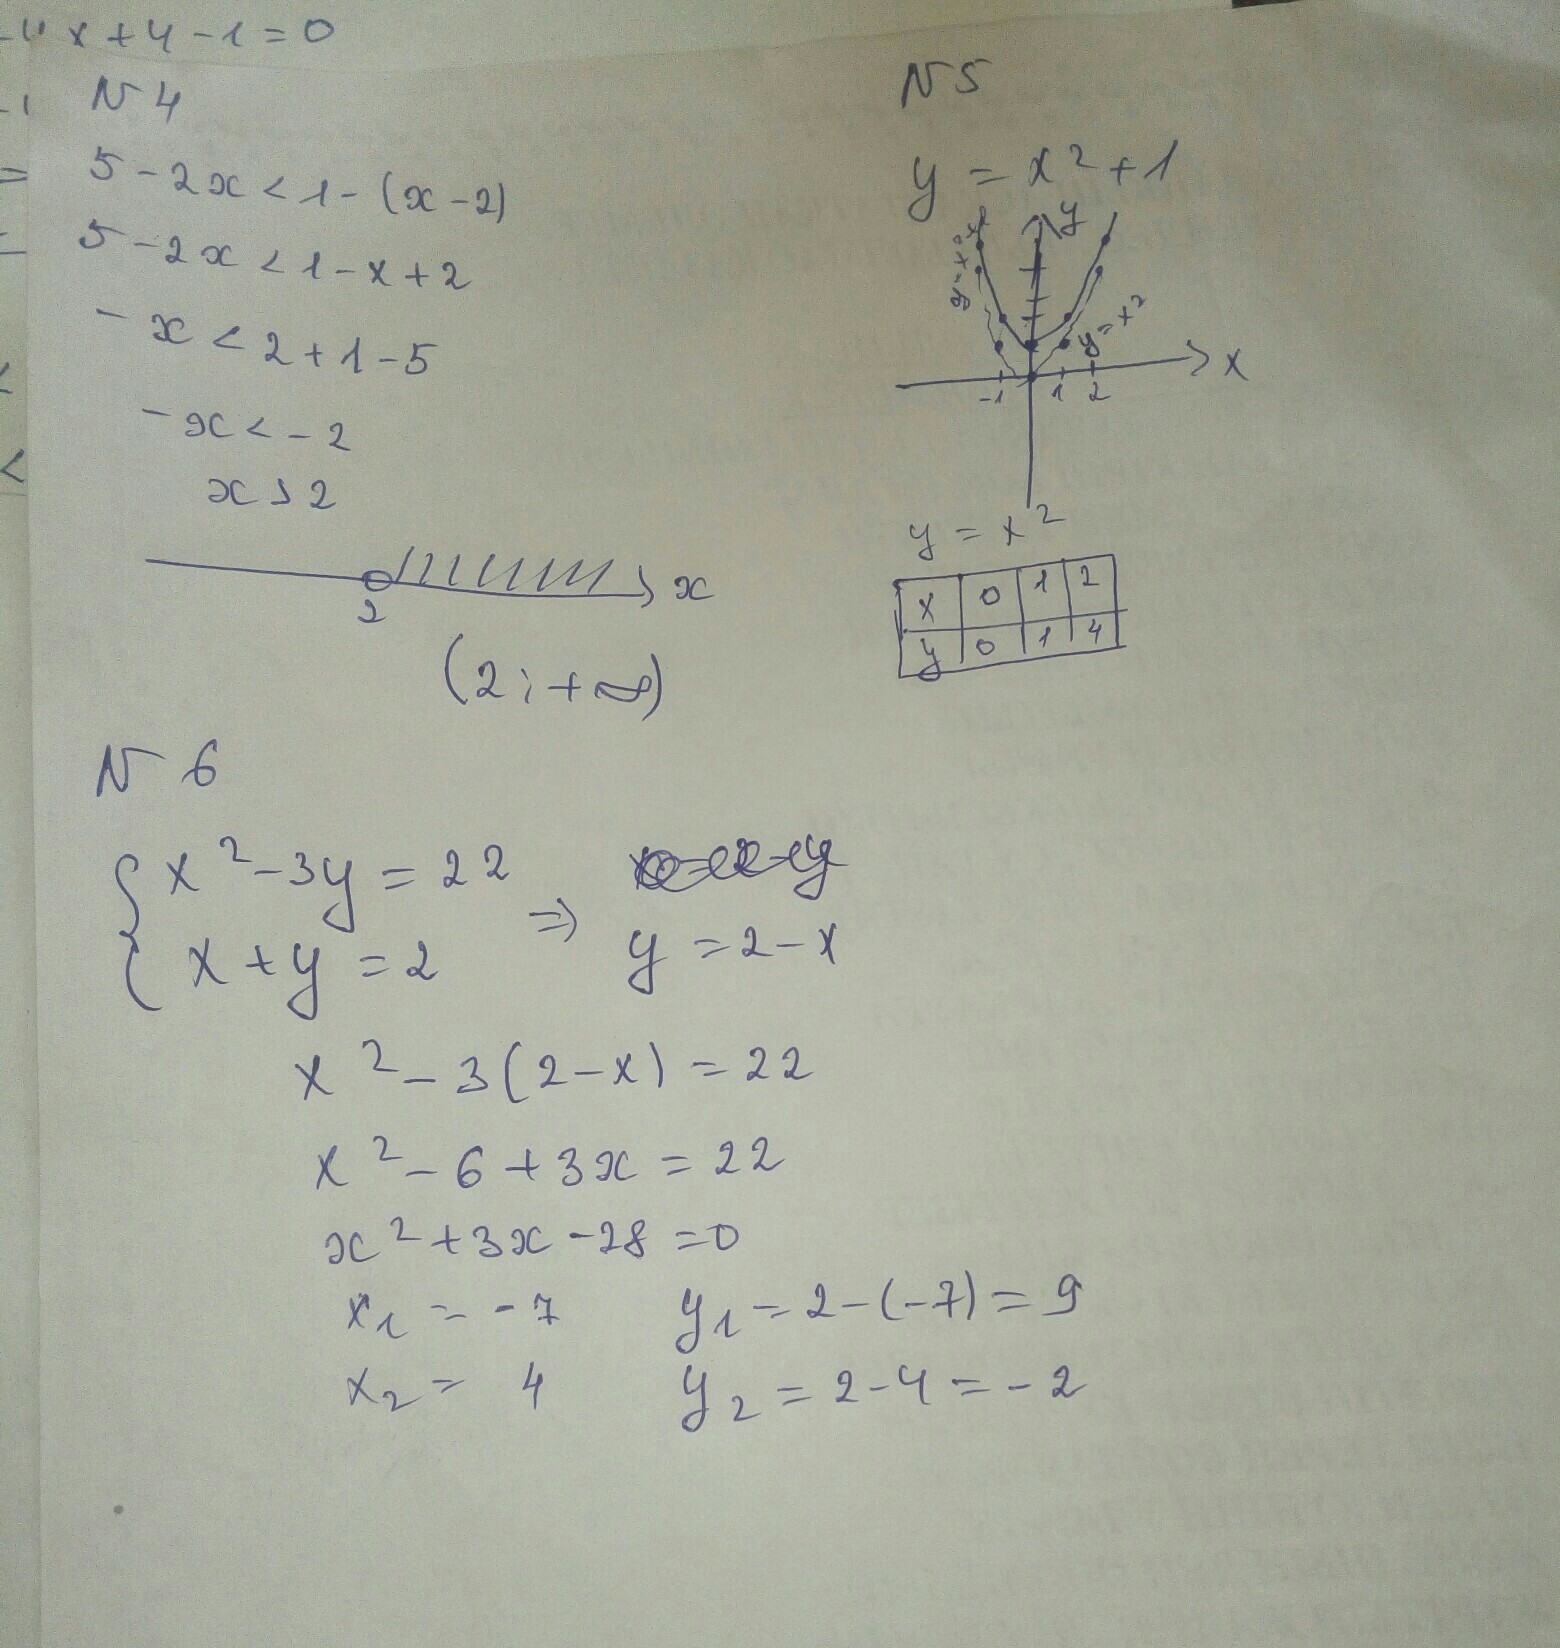 x+4-1=0
N 4
5-2x<1-(x-2)
5-2x<1-x+2
-x<2+1-5
-x<-2
x>2
2 x
(2;+∞)
N5
y=x²+1
y
y=x²
x
-1 1 2
y=x²
x 0 1 2
y 0 1 4
N 6
{x²-3y=22
x+y=2 => y=2-x
x²-3(2-x)=22
x²-6+3x=22
x²+3x-28=0
x₁=-7 y₁=2-(-7)=9
x₂=4 y₂=2-4=-2